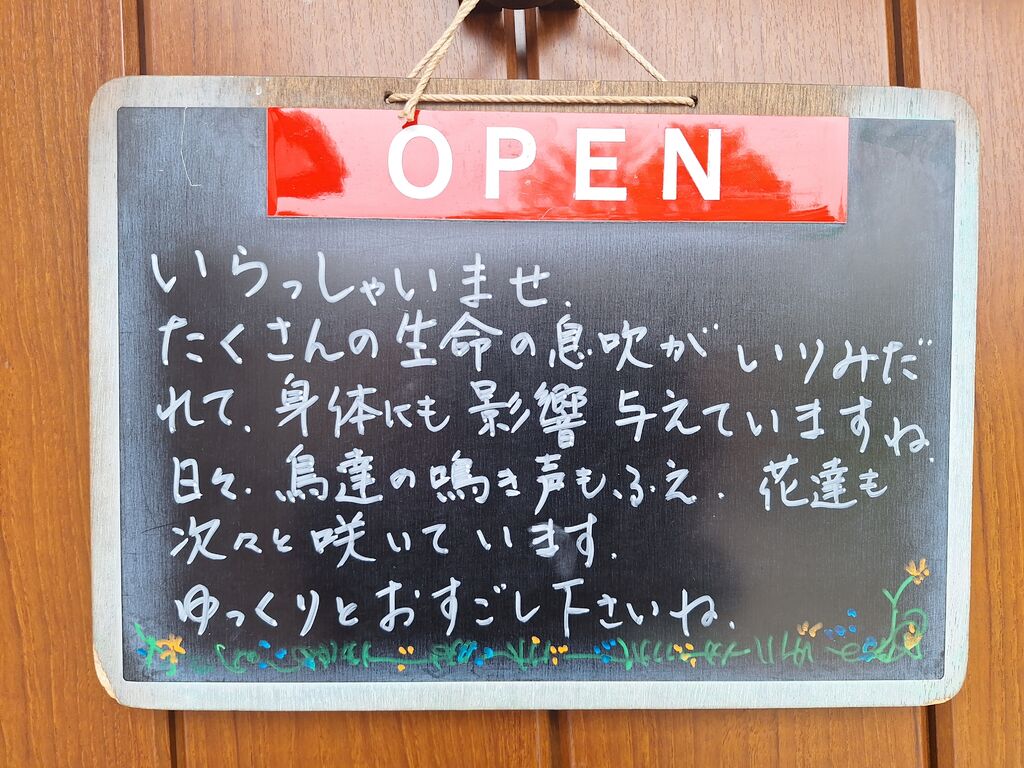 OPEN
いらっしゃいませ.
たくさんの生命の息吹が いりみだ
れて.身体にも影響 与えていますね.
日々.鳥達の鳴き声もふえ.花達も
次々と咲いています.
ゆっくりとおすごし下さいね.